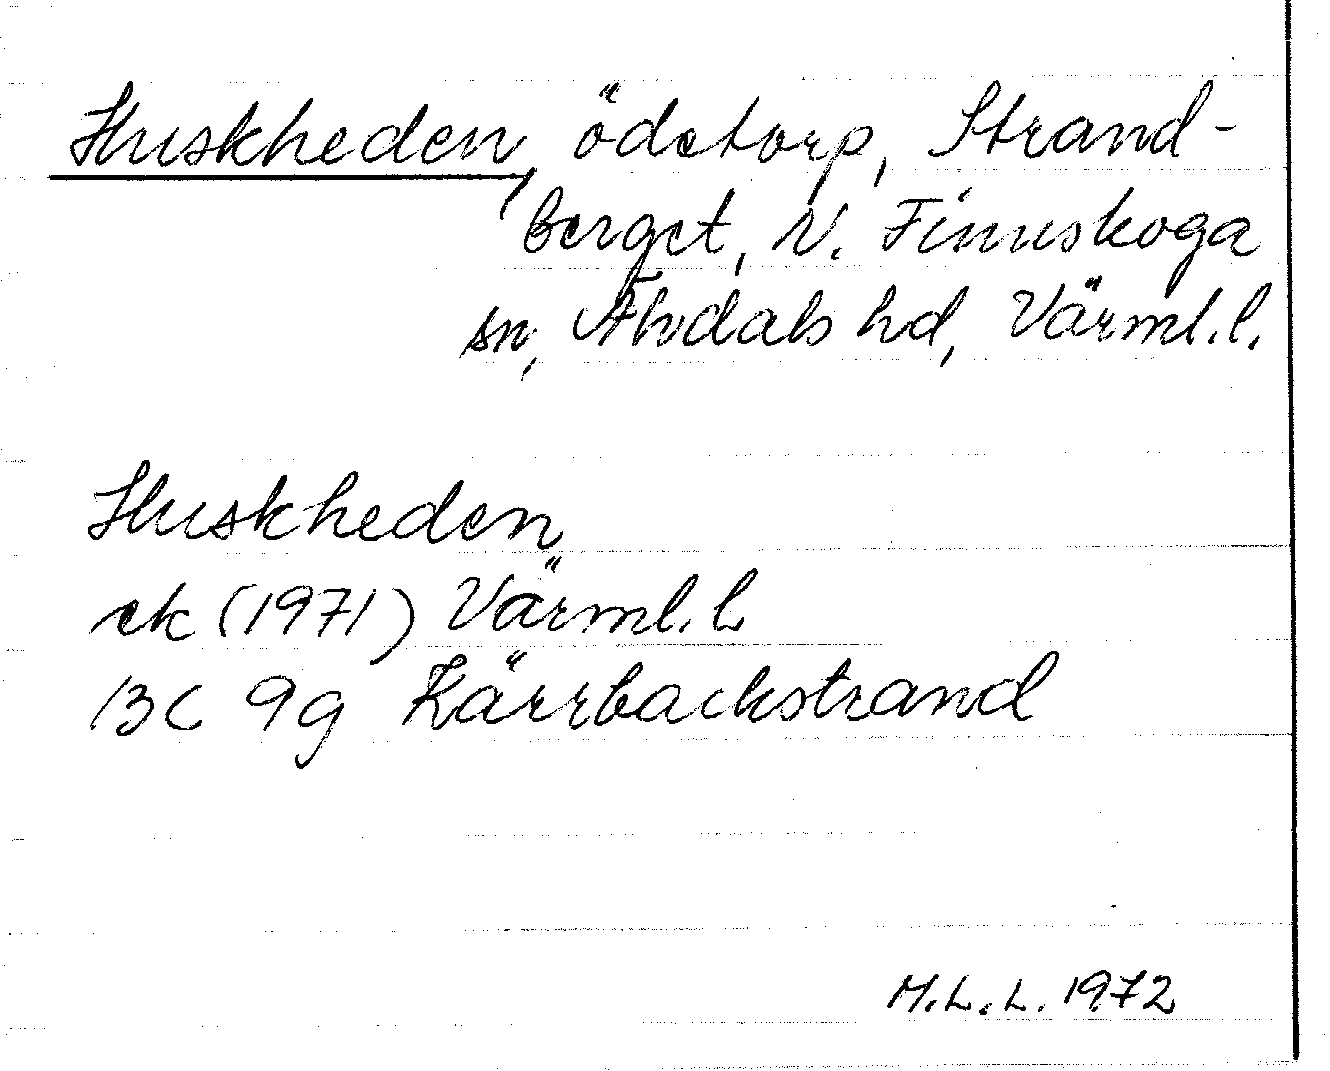 Huskheden, ödetorp, Strand-
berget, N. Finnskoga
sn, Älvdals hd, Värml.l.
Huskheden
ek (1971) Värml. L
13C 9g Kärrbackstrand
M.L.L. 1972